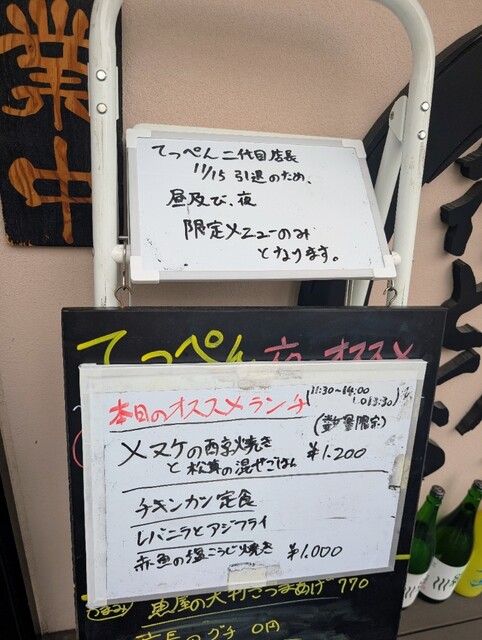 業中
てっぺん二代目店長
11/15 引退のため、
昼及び、夜
限定メニューのみ
となります。
てっぺん 夜 オススメ
本日のオススメランチ
11:30〜14:00
L.O 13:30
(数量限定)
メヌケの西京焼き
と松茸の混ぜごはん ¥1.200
チキンカツ定食
レバニラとアジフライ
赤魚の塩こうじ焼き ¥1.000
魚屋の大判さつまあげ 770
店長のグチ 0円